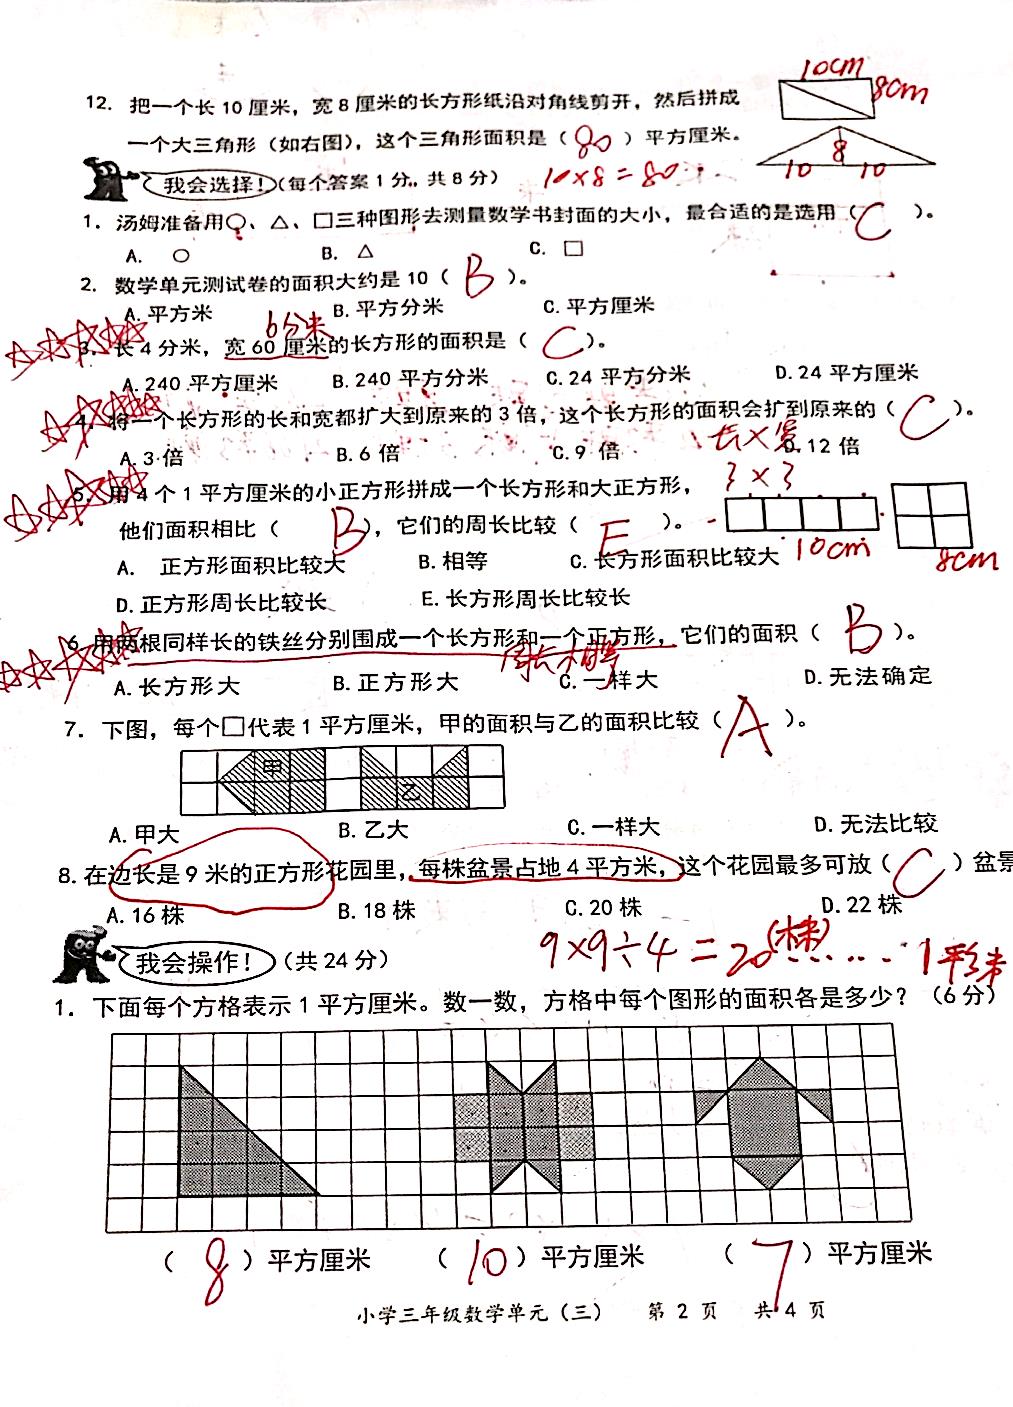 10cm
8cm
12. 把一个长 10 厘米，宽 8 厘米的长方形纸沿对角线剪开，然后拼成
一个大三角形（如右图），这个三角形面积是（ 80 ）平方厘米。
8
10 10
我会选择！（每个答案 1 分，共 8 分） 10×8=80
1. 汤姆准备用○、△、□三种图形去测量数学书封面的大小，最合适的是选用（ C ）。
A. ○ B. △ C. □
2. 数学单元测试卷的面积大约是 10（ B ）。
A. 平方米 B. 平方分米 C. 平方厘米
6分米
3. 长 4 分米，宽 60 厘米的长方形的面积是（ C ）。
A. 240 平方厘米 B. 240 平方分米 C. 24 平方分米 D. 24 平方厘米
4. 将一个长方形的长和宽都扩大到原来的 3 倍，这个长方形的面积会扩到原来的（ C ）。
长×宽
A. 3 倍 B. 6 倍 C. 9 倍 D. 12 倍
3×3
5. 用 4 个 1 平方厘米的小正方形拼成一个长方形和大正方形，
他们面积相比（ B ），它们的周长比较（ E ）。
10cm 8cm
A. 正方形面积比较大 B. 相等 C. 长方形面积比较大
D. 正方形周长比较长 E. 长方形周长比较长
6. 用两根同样长的铁丝分别围成一个长方形和一个正方形，它们的面积（ B ）。
周长相等
A. 长方形大 B. 正方形大 C. 一样大 D. 无法确定
7. 下图，每个□代表 1 平方厘米，甲的面积与乙的面积比较（ A ）。
甲
乙
A. 甲大 B. 乙大 C. 一样大 D. 无法比较
8. 在边长是 9 米的正方形花园里，每株盆景占地 4 平方米，这个花园最多可放（ C ）盆景
A. 16 株 B. 18 株 C. 20 株 D. 22 株
9×9÷4=20(株)……1平方米
我会操作！（共 24 分）
1. 下面每个方格表示 1 平方厘米。数一数，方格中每个图形的面积各是多少？（6 分）
（ 8 ）平方厘米 （ 10 ）平方厘米 （ 7 ）平方厘米
小学三年级数学单元（三） 第 2 页 共 4 页